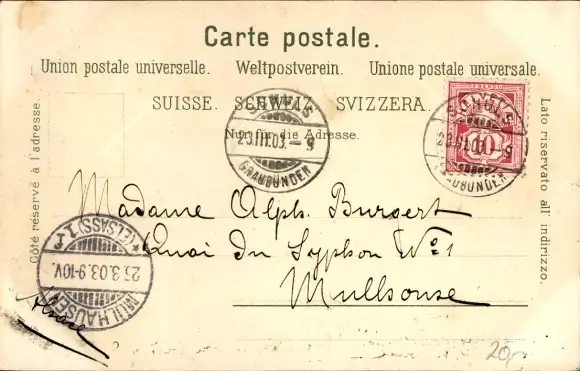 Carte postale.
Union postale universelle. Weltpostverein. Unione postale universale.
SUISSE. SCHWEIZ SVIZZERA.
Nur für die Adresse.
Côté réservé à l'adresse.
Lato riservato all' indirizzo.
SCHULS
23.III.03.–9
GRAUBÜNDEN
FRANCO
10
SCHULS
23.III.03.–9
GRAUBÜNDEN
Madame Alph. Burgert
Quai du Syphon No 1
Mulhouse
Alsace
MÜLHAUSEN
25.3.03.9-10V.
(ELSASS) 1
20,-